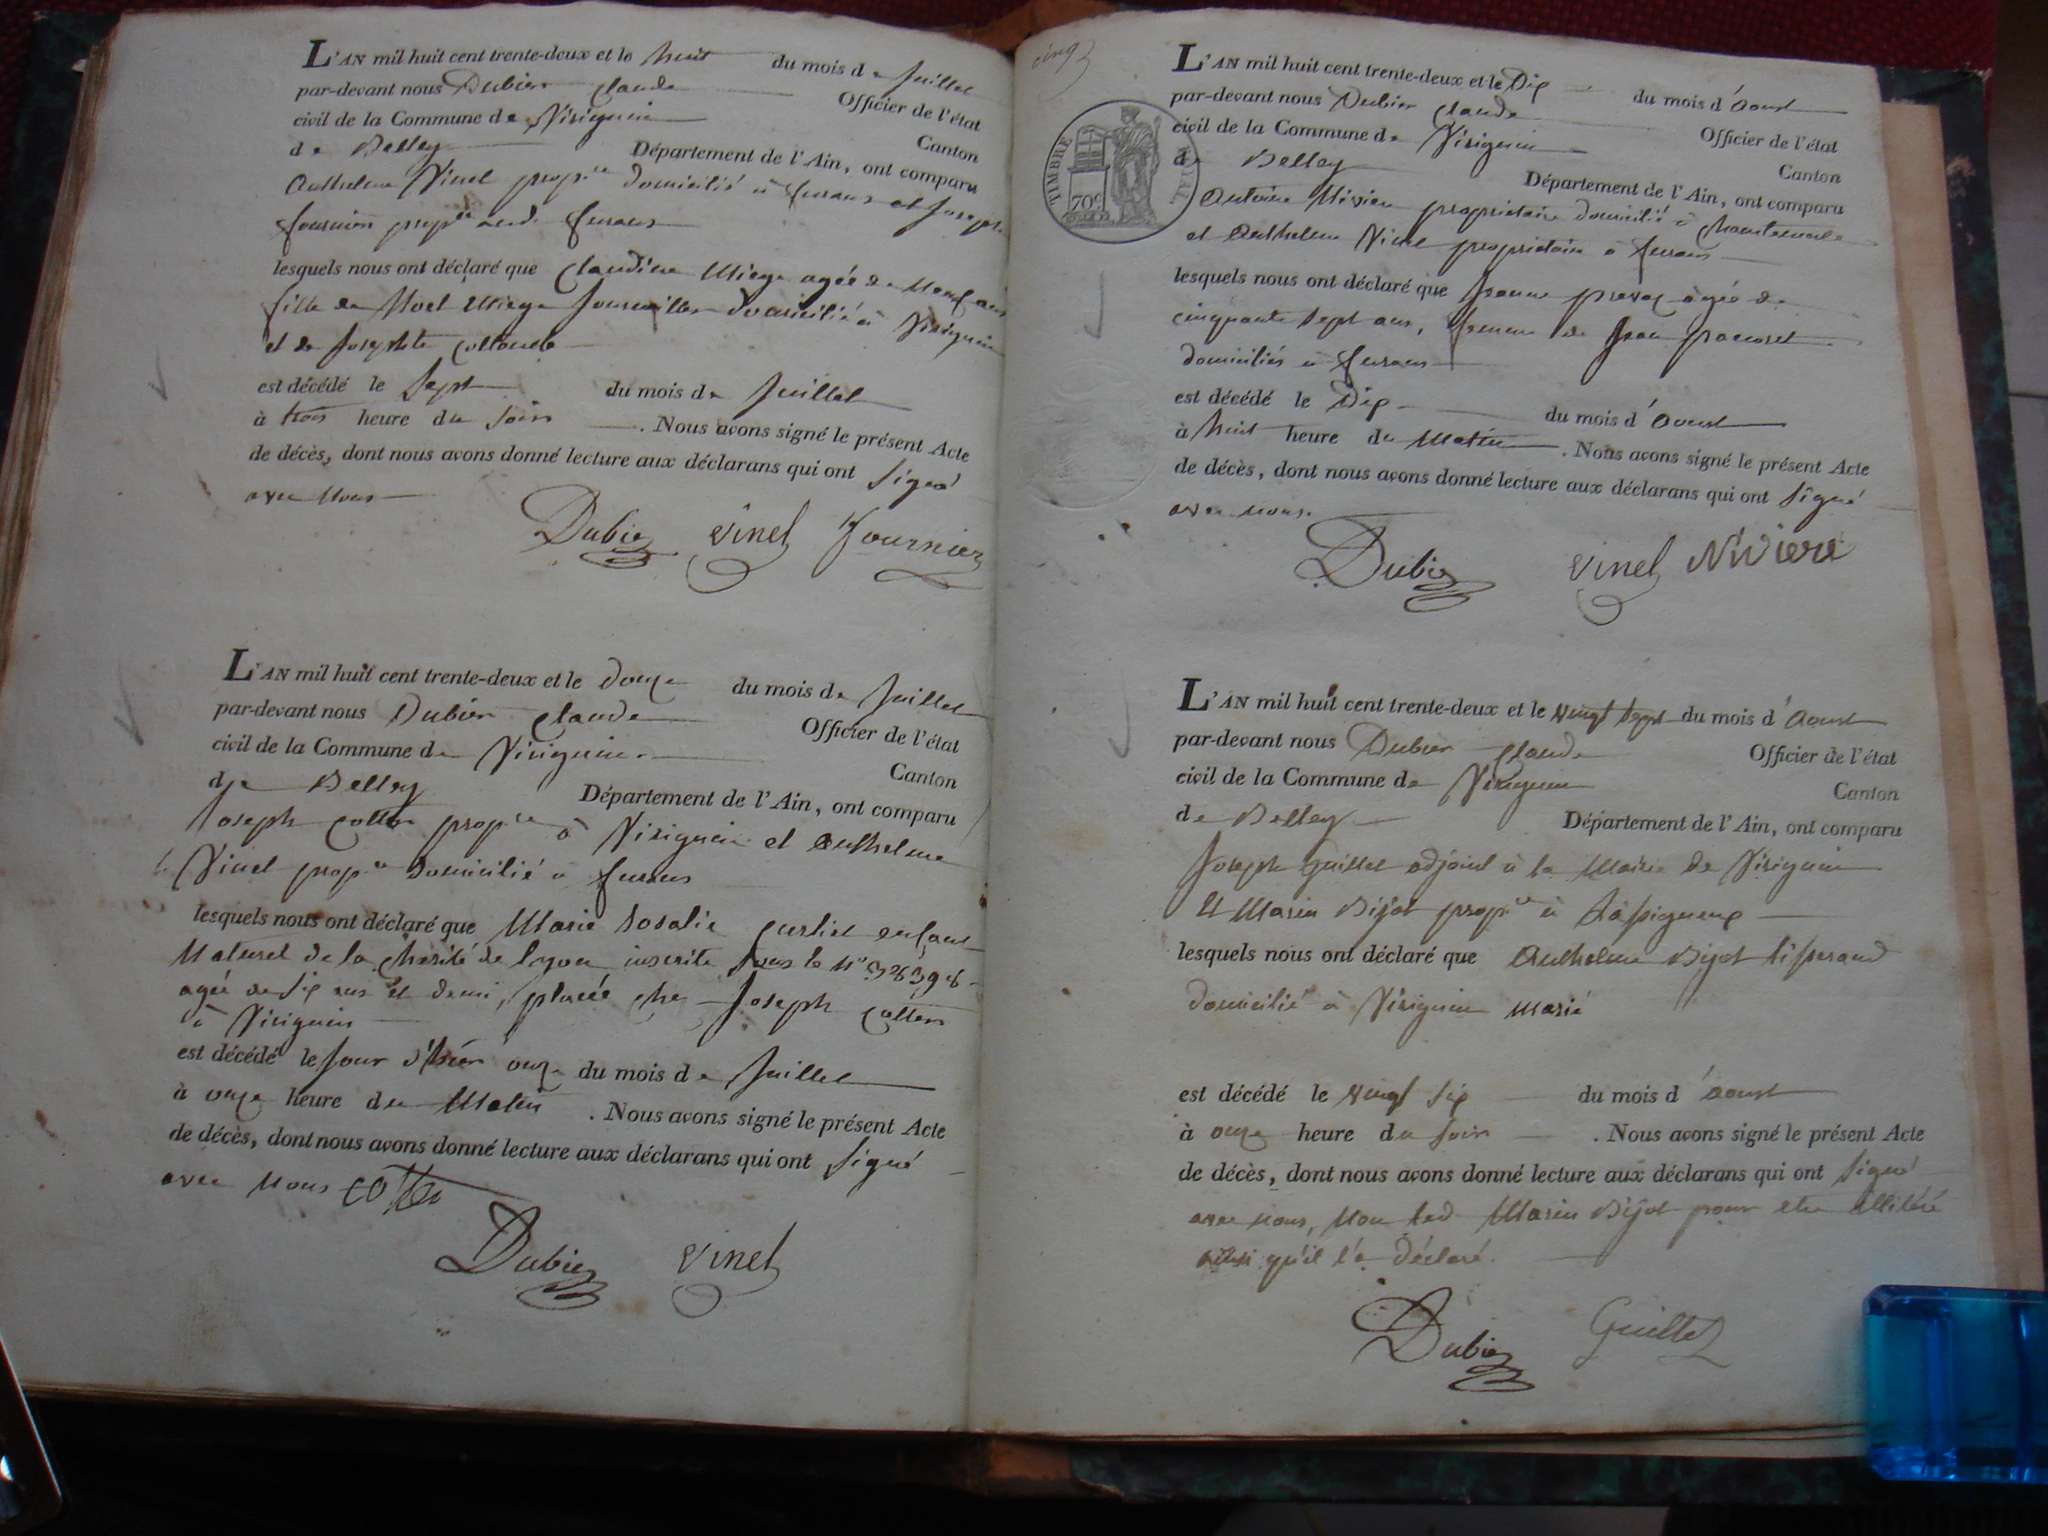 L'AN mil huit cent trente-deux et le huit du mois de Juillet
par-devant nous Dubier Claude Officier de l'état
civil de la Commune de Virignin Canton
de Belley Département de l'Ain, ont comparu
Anthelme Vinet prop.re domicilié à furans et Joseph
fournier prop.re furans
lesquels nous ont déclaré que Claudine Miege agée de neuf ans
fille de Noel Miege Journallier domicilié à Virignin
et de Josephte
est décédé le Sept du mois de Juillet
à trois heure du soir . Nous avons signé le présent Acte
de décès, dont nous avons donné lecture aux déclarans qui ont signé
avec nous
Dubier Vinet fournier
L'AN mil huit cent trente-deux et le douze du mois de Juillet
par-devant nous Dubier Claude Officier de l'état
civil de la Commune de Virignin Canton
de Belley Département de l'Ain, ont comparu
Joseph Cotten prop.re à Virignin et Anthelme
Vinet prop.re domicilié à furans
lesquels nous ont déclaré que Marie Rosalie enfant
naturel de la charité de Lyon inscrite sous le N.o
agée de six ans et demi, placée chez Joseph Cotten
à Virignin
est décédé le jour d'hier onze du mois de Juillet
à onze heure du Matin . Nous avons signé le présent Acte
de décès, dont nous avons donné lecture aux déclarans qui ont signé
avec nous Cotten
Dubier Vinet
cinq
TIMBRE ROYAL
70c
L'AN mil huit cent trente-deux et le Dix du mois d'aoust
par-devant nous Dubier Claude Officier de l'état
civil de la Commune de Virignin Canton
de Belley Département de l'Ain, ont comparu
Antoine Nivière propriétaire domicilié à
et Anthelme Vinet propriétaire à furans
lesquels nous ont déclaré que Jeanne agée de
cinquante sept ans, femme de Jean
domiciliés à furans
est décédé le Dix du mois d'aoust
à huit heure du Matin . Nous avons signé le présent Acte
de décès, dont nous avons donné lecture aux déclarans qui ont signé
avec nous.
Dubier Vinet Nivière
L'AN mil huit cent trente-deux et le vingt sept du mois d'aoust
par-devant nous Dubier Claude Officier de l'état
civil de la Commune de Virignin Canton
de Belley Département de l'Ain, ont comparu
Joseph Guillet adjoint à la Mairie de Virignin
et Marin Bijot prop.re à
lesquels nous ont déclaré que Anthelme Bijot tisserand
domicilié à Virignin marié
est décédé le vingt six du mois d'aoust
à onze heure du soir . Nous avons signé le présent Acte
de décès, dont nous avons donné lecture aux déclarans qui ont signé
avec nous, non led. Marin Bijot pour etre illitéré
ainsi qu'il l'a déclaré.
Dubier Guillet